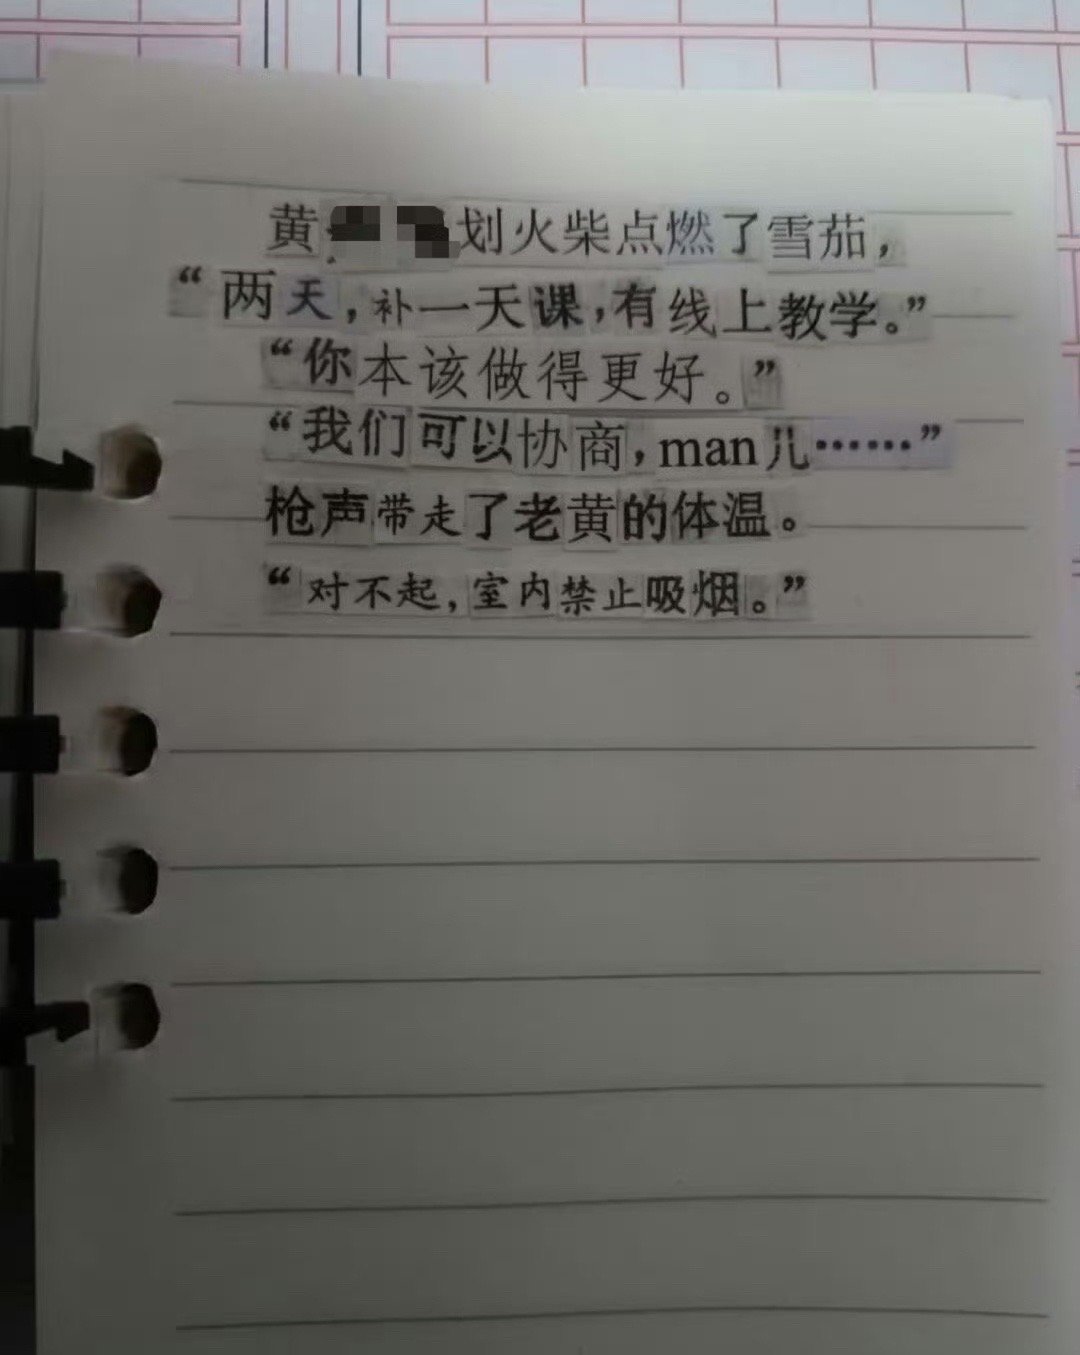 黄划火柴点燃了雪茄，
“两天，补一天课，有线上教学。”
“你本该做得更好。”
“我们可以协商，man儿……”
枪声带走了老黄的体温。
“对不起，室内禁止吸烟。”